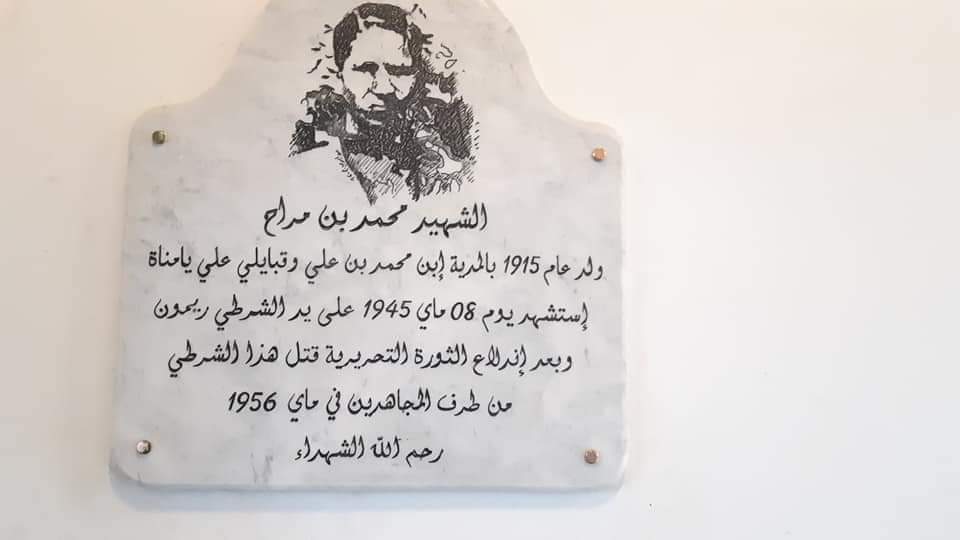 الشهيد محمد بن مراح
ولد عام 1915 بالمدية إبن محمد بن علي وقبايلي علي يامناة
إستشهد يوم 08 ماي 1945 على يد الشرطي ريمون
وبعد إندلاع الثورة التحريرية قتل هذا الشرطي
من طرف المجاهدين في ماي 1956
رحم الله الشهداء